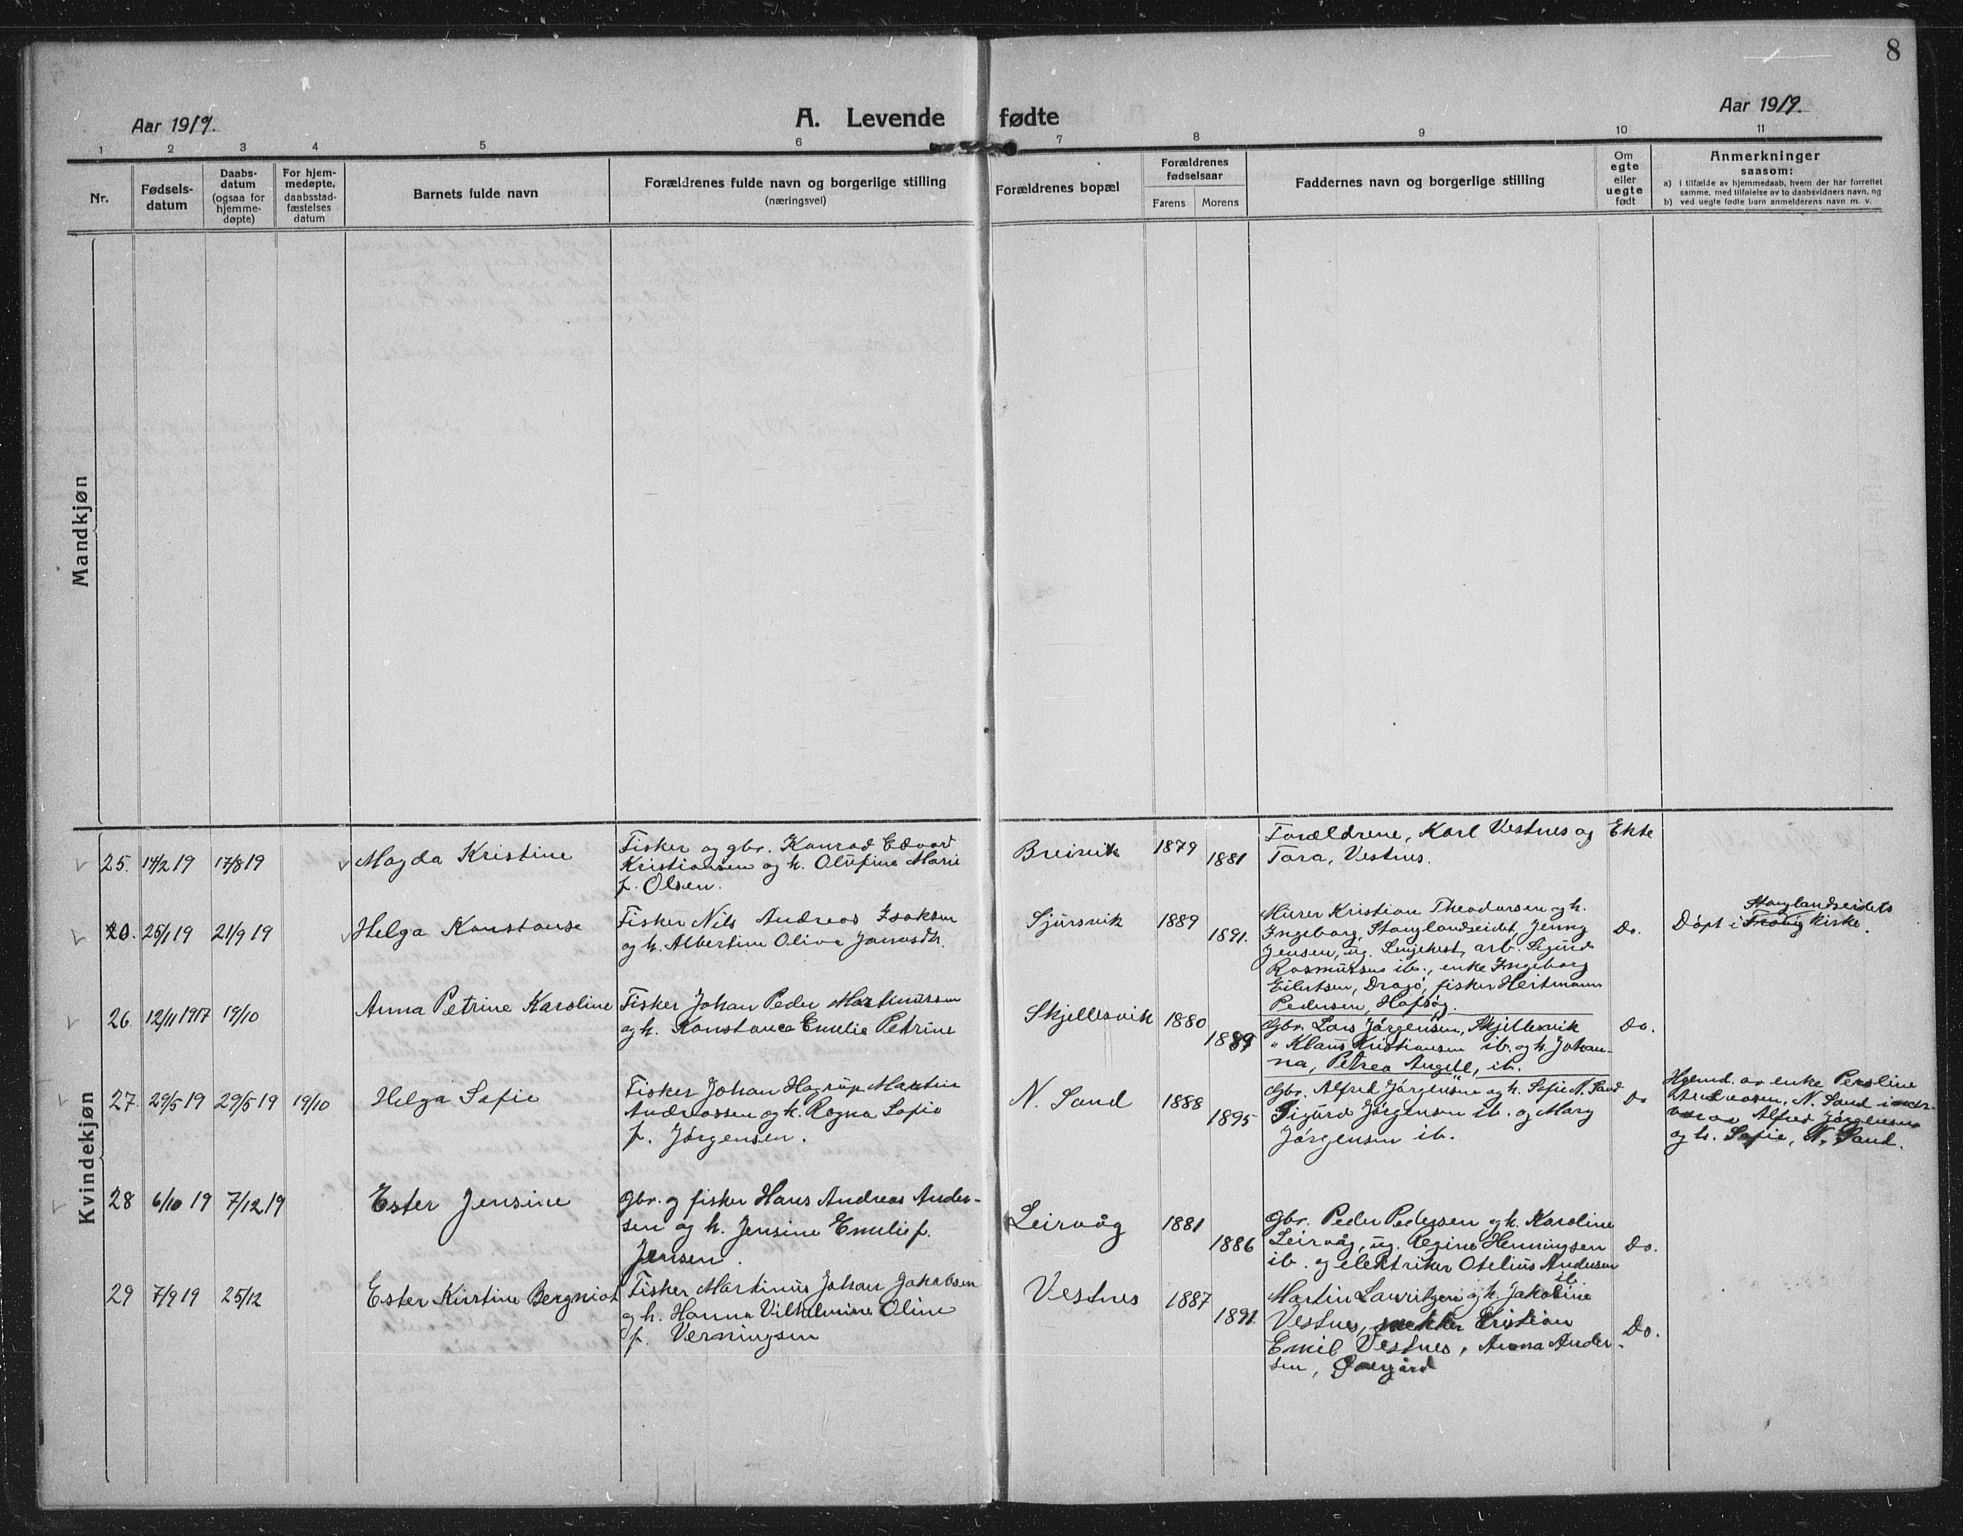 8
Aar 1919.
A. Levende fødte
Aar 1919.
1 2 3 4 5 6 7 8 9 10 11
Nr.
Fødsels-
datum
Daabs-
datum
(ogsaa for
hjemme-
døpte)
For hjem-
medøpte,
daabsstad-
fæstelses
datum
Barnets fulde navn
Forældrenes fulde navn og borgerlige stilling
(næringsvei)
Forældrenes bopæl
Forældrenes
fødselsaar
Farens Morens
Faddernes navn og borgerlige stilling
Om
egte
eller
uegte
født
Anmerkninger
saasom:
a) i tilfælde av hjemmedaab, hvem der har forrettet
samme, med tilføielse av to daabsvidners navn, og
b) ved uegte fødte barn anmelderens navn m. v.
Mandkjøn
Kvindekjøn
25. 14/2 19 17/8 19
Magda Kristine
Fisker og gbr. Konrad Edvard
Kristiansen og h. Olufine Marie
f. Olsen.
Breivik
1879
1881
Forældrene, Karl Vestnes og
Tora, Vestnes.
Ekte
20. 25/1 19 21/9 19
Helga Konstanse
Fisker Nils Andreas Isaksen
og h. Albertine Oliva Jonasdtr.
Sjursvik
1889
1891.
Murer Kristian Theodorsen og h.
Ingeborg, Stonglandseidet, Jenny
Jensen, ug. Lenjehest, arb. Sigurd
Rasmussen ib., enke Ingeborg
Eilertsen, Drajø, fisker Heitmann
Pedersen, Hofsøy.
Do.
Døpt i Stonglandseidets
Kirke.
26. 12/11 1917 19/10
Anna Petrine Karoline
Fisker Johan Peder Martinussen
og h. Konstance Emelie Petrine
Skjellesvik
1880
1889
Gbr. Lars Jørgensen, Skjellesvik
" Klaus Kristiansen ib. og h. Johan-
na, Petrea Angell, ib.
Do.
27. 29/5 19 29/5 19 19/10
Helga Sofie
Fisker Johan Hagrup Martin
Andreassen og h. Ragna Sofie
f. Jørgensen.
N. Sand
1888
1895
Gbr. Alfred Jørgensen og h. Sofie N. Sand
Sigurd Jørgensen ib. og Mary
Jørgensen ib.
Do
Hjemd. av enke Peroline
Andreasen, N. Sand i nær-
vær av Alfred Jørgensen
og h. Sofie, N. Sand.
28 6/10 19 7/12 19
Ester Jensine
Gbr. og fisker Hans Andreas Ander-
sen og h. Jensine Emelie f.
Jensen.
Leirvåg
1881
1886
Gbr. Peder Pedersen og h. Karoline
Leirvåg, ug. Regine Henningsen
ib. og elektriker Otelius Andersen
ib.
Do.
29 7/9 19 25/12
Ester Kirstine Bergniot
Fisker Martinus Johan Jakobsen
og h. Hanna Vilhelmine Oline
f. Verningsen
Vestnes
1887
1891
Martin Lauritzen og h. Jakobine
Vestnes, snekker Kristian
Emil Vestnes, Anna Ander-
sen, Øvergård
Do.